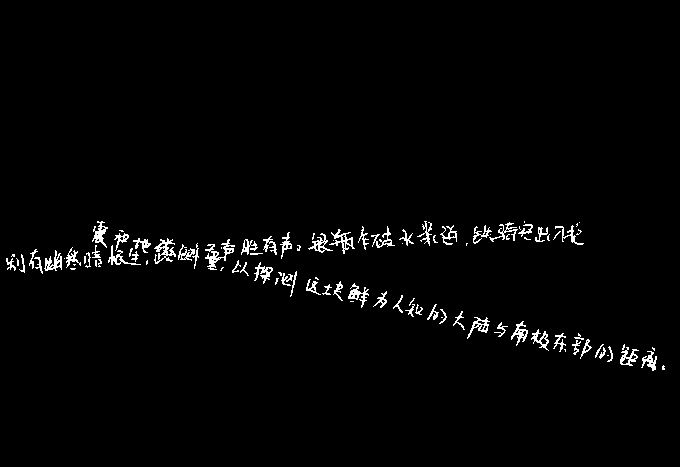 别有幽愁暗恨生,此时无声胜有声。银瓶乍破水浆迸,铁骑突出刀枪
震和地磁测量,以探测这块鲜为人知的大陆与南极东部的距离。